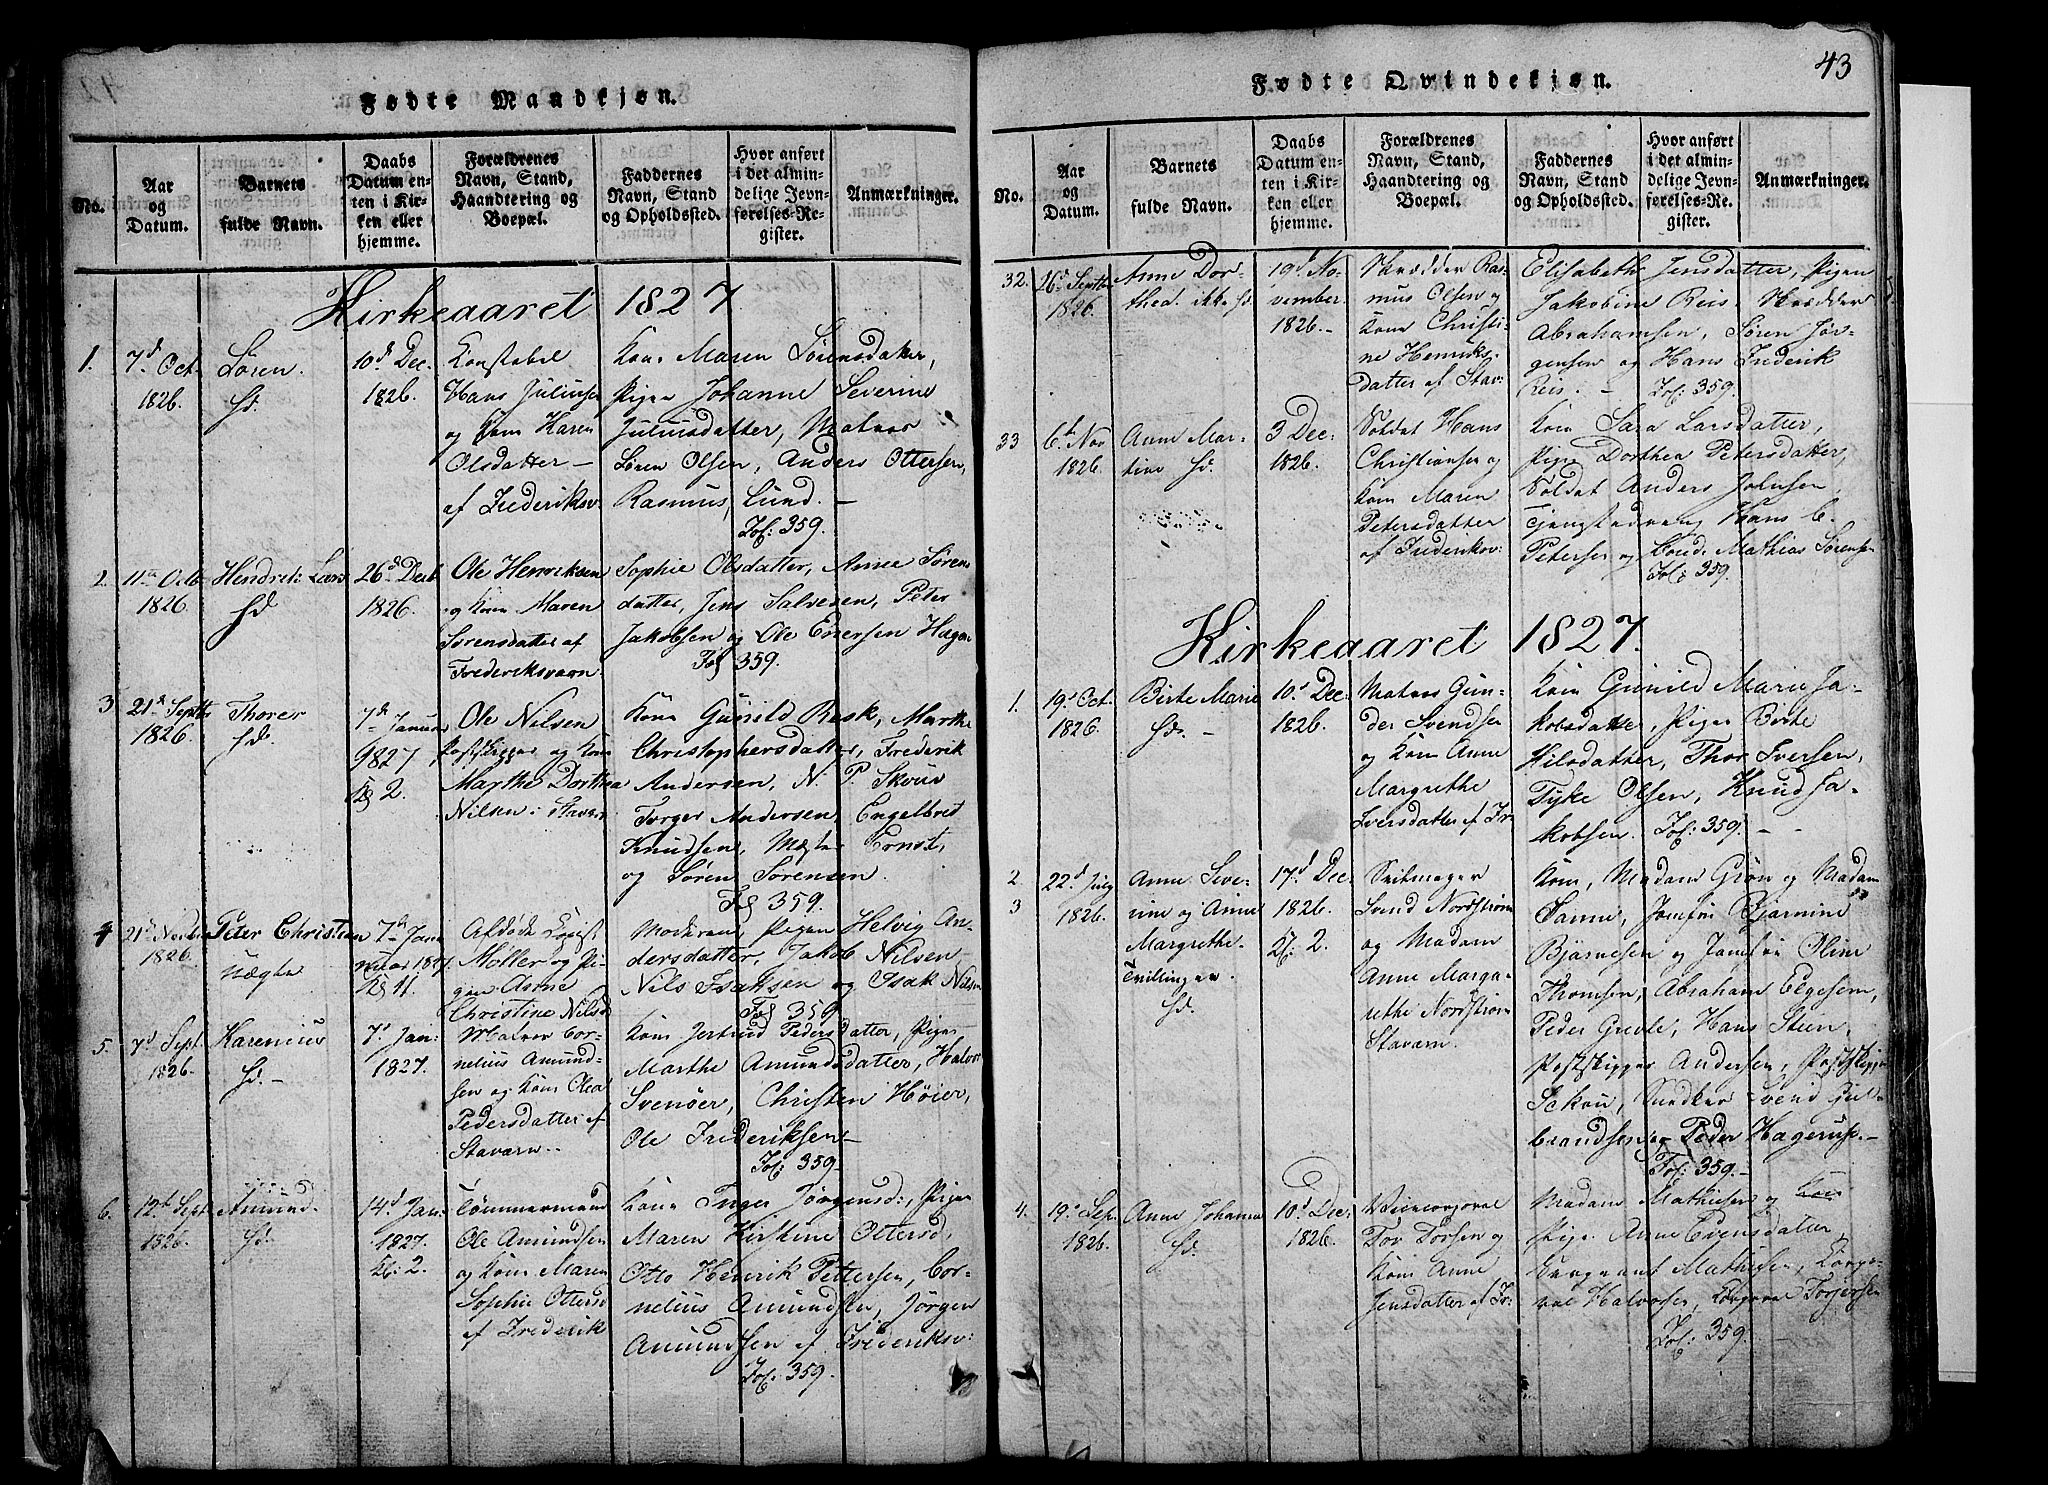 Fødte Mandkjøn.
No.
Aar og Datum.
Barnets fulde Navn.
Daabs Datum enten i Kirken eller hjemme.
Forældrenes Navn, Stand, Haandtering og Boepæl.
Faddernes Navn, Stand og Opholdssted.
Hvor anført i det almindelige Jevnførelses-Register.
Anmærkninger.
Kirkeaaret 1827
1.
7d Oct.
1826.
Søren.
Hd.
10d Dec.
1826.
Konstabel
Hans Juliusen
og Kone Karen
Olsdatter —
af Frederiksv.
Kone Maren Sørensdatter,
Pigen Johanne Severine
Juliusdatter, Matros
Søren Olsen, Anders Ottersen,
Rasmus Lund. —
Fol: 359.
2.
11te Octb
1826.
Hd
26d Decb
1826.
Ole Henriksen
og Kone Maren
Sørensdatter af
Frederiksværn.
Sophie Olsdatter, Anne Sørens
datter, Jens Salvesen, Peter
Jakobsen og Ole Enersen
Fol 359.
3
21d Septbr
1826.
Thorer
Hd.
7de Januar
1827
2.
Ole Nilsen
Postskipper og Kone
Marthe Dorthea
Nilsen i Stavern
Kone Gunild Rask, Marthe
Christophersdatter, Frederik
Andersen, N. P. Skou
Torger Andersen, Engelbret
Knudsen, Ernst,
og Søren Sørensen.
Fol 359.
4
1826.
Peter Christian
uægte
7de Januar 1827.
11.
Afdøde
Møller og Pigen Anne
Christine Nilsd
Moderen, Pigen Helvig Andersdatter,
Jakob Nilsen
Nils Isaksen og Isak Nilsen
Fol 359
5.
7d Sept.
1826.
Karenius
Hd. —
7d Jan:
1827.
Matros Cornelius
Amundsen
og Kone Olea
Pedersdatter af
Stavern..
Kone Jertrud Pedersdatter, Pigen
Marthe Amundsdatter, Halvor
Svenøer, Christen Høier,
Ole Frederiksen —
Fol: 359 —
6.
12te Sept
1826.
Amund.
Hd.
14d Jan:
1827.
2.
Tømmermand
Ole Amundsen
og Kone Maren
Sophie Ottersd
af Frederik
Kone Inger Jørgensd:, Pigen
Maren Kirstine Ottersd,
Otto Henrik Pettersen, Cornelius
Amundsen, Jørgen
Amundsen af Frederiksv:
Fol: 359.
43
Fødte Qvindekjøn.
No.
Aar og Datum.
Barnets fulde Navn.
Daabs Datum enten i Kirken eller hjemme.
Forældrenes Navn, Stand, Haandtering og Boepæl.
Faddernes Navn, Stand og Opholdssted.
Hvor anført i det almindelige Jevnførelses-Register.
Anmærkninger.
32.
26d Septbr
1826.
Anne Dorthea.
ikke hd.
19d November
1826. —
Skrædder Rasmus
Olsen og
Kone Christine
Henriksdatter
af Stav:
Elisabeth Jensdatter, Pigen
Jakobine Reis, Skrædder
Abrahamsen, Søren Jørgensen
og Hans Frederik
Reis. — Fol: 359.
33
6te Nov
1826.
Anne Martine
Hd.
3 Dec:
1826.
Soldat Hans
Christiansen og
Kone Maren
Petersdatter
af Frederiksv:
Kone Sara Larsdatter,
Pige Dorthea Petersdatter,
Soldat Anders Johnsen,
Hans C.
Petersen og Mathias Sørensen
Fol: 359.
Kirkeaaret 1827.
1.
19d Oct.
1826.
Birte Marie
Hd. —
10d Dec:
1826.
Matros Gunder
Svendsen
og Kone Anne
Margrethe
Iversdatter af Fr
Kone Gunild Marie Jakobsdatter,
Pigen Birte
Nilsdatter, Thor Iversen,
Tyke Olsen, Knud Jakobsen.
Fol: 359. —
2.
3
22d July
1826.
Anne Severine
og Anne
Margrethe
Tvillinger.
Hd.
17d Dec:
1826.
2.
Svend Nordstrøm
og Madam
Anne Margarethe
Nordstrøm
Stavern.
Kone, Madam Grøn og Madam
Sanne, Jomfru Bjarnine
Bjarnesen og Jomfru Oline
Thomsen, Abraham Elgesem,
Peder Greve, Hans Steen,
Postskipper Andersen, Postskipper
Schou, Snedker Svend Gulbrandsen
og Peder Hagerup. —
Fol: 359 —
4.
19d Sep.
1826.
Anne Johanne
Hd.
10d Dec:
1826.
Vicecorporal
Tov Torsen og
Kone Anne
Jensdatter af Fr
Madam Mathisen og
Pige Anne Evensdatter
Sergeant Mathisen, Corporal
Halvorsen, Corporal Torjersen
Fol: 359. —